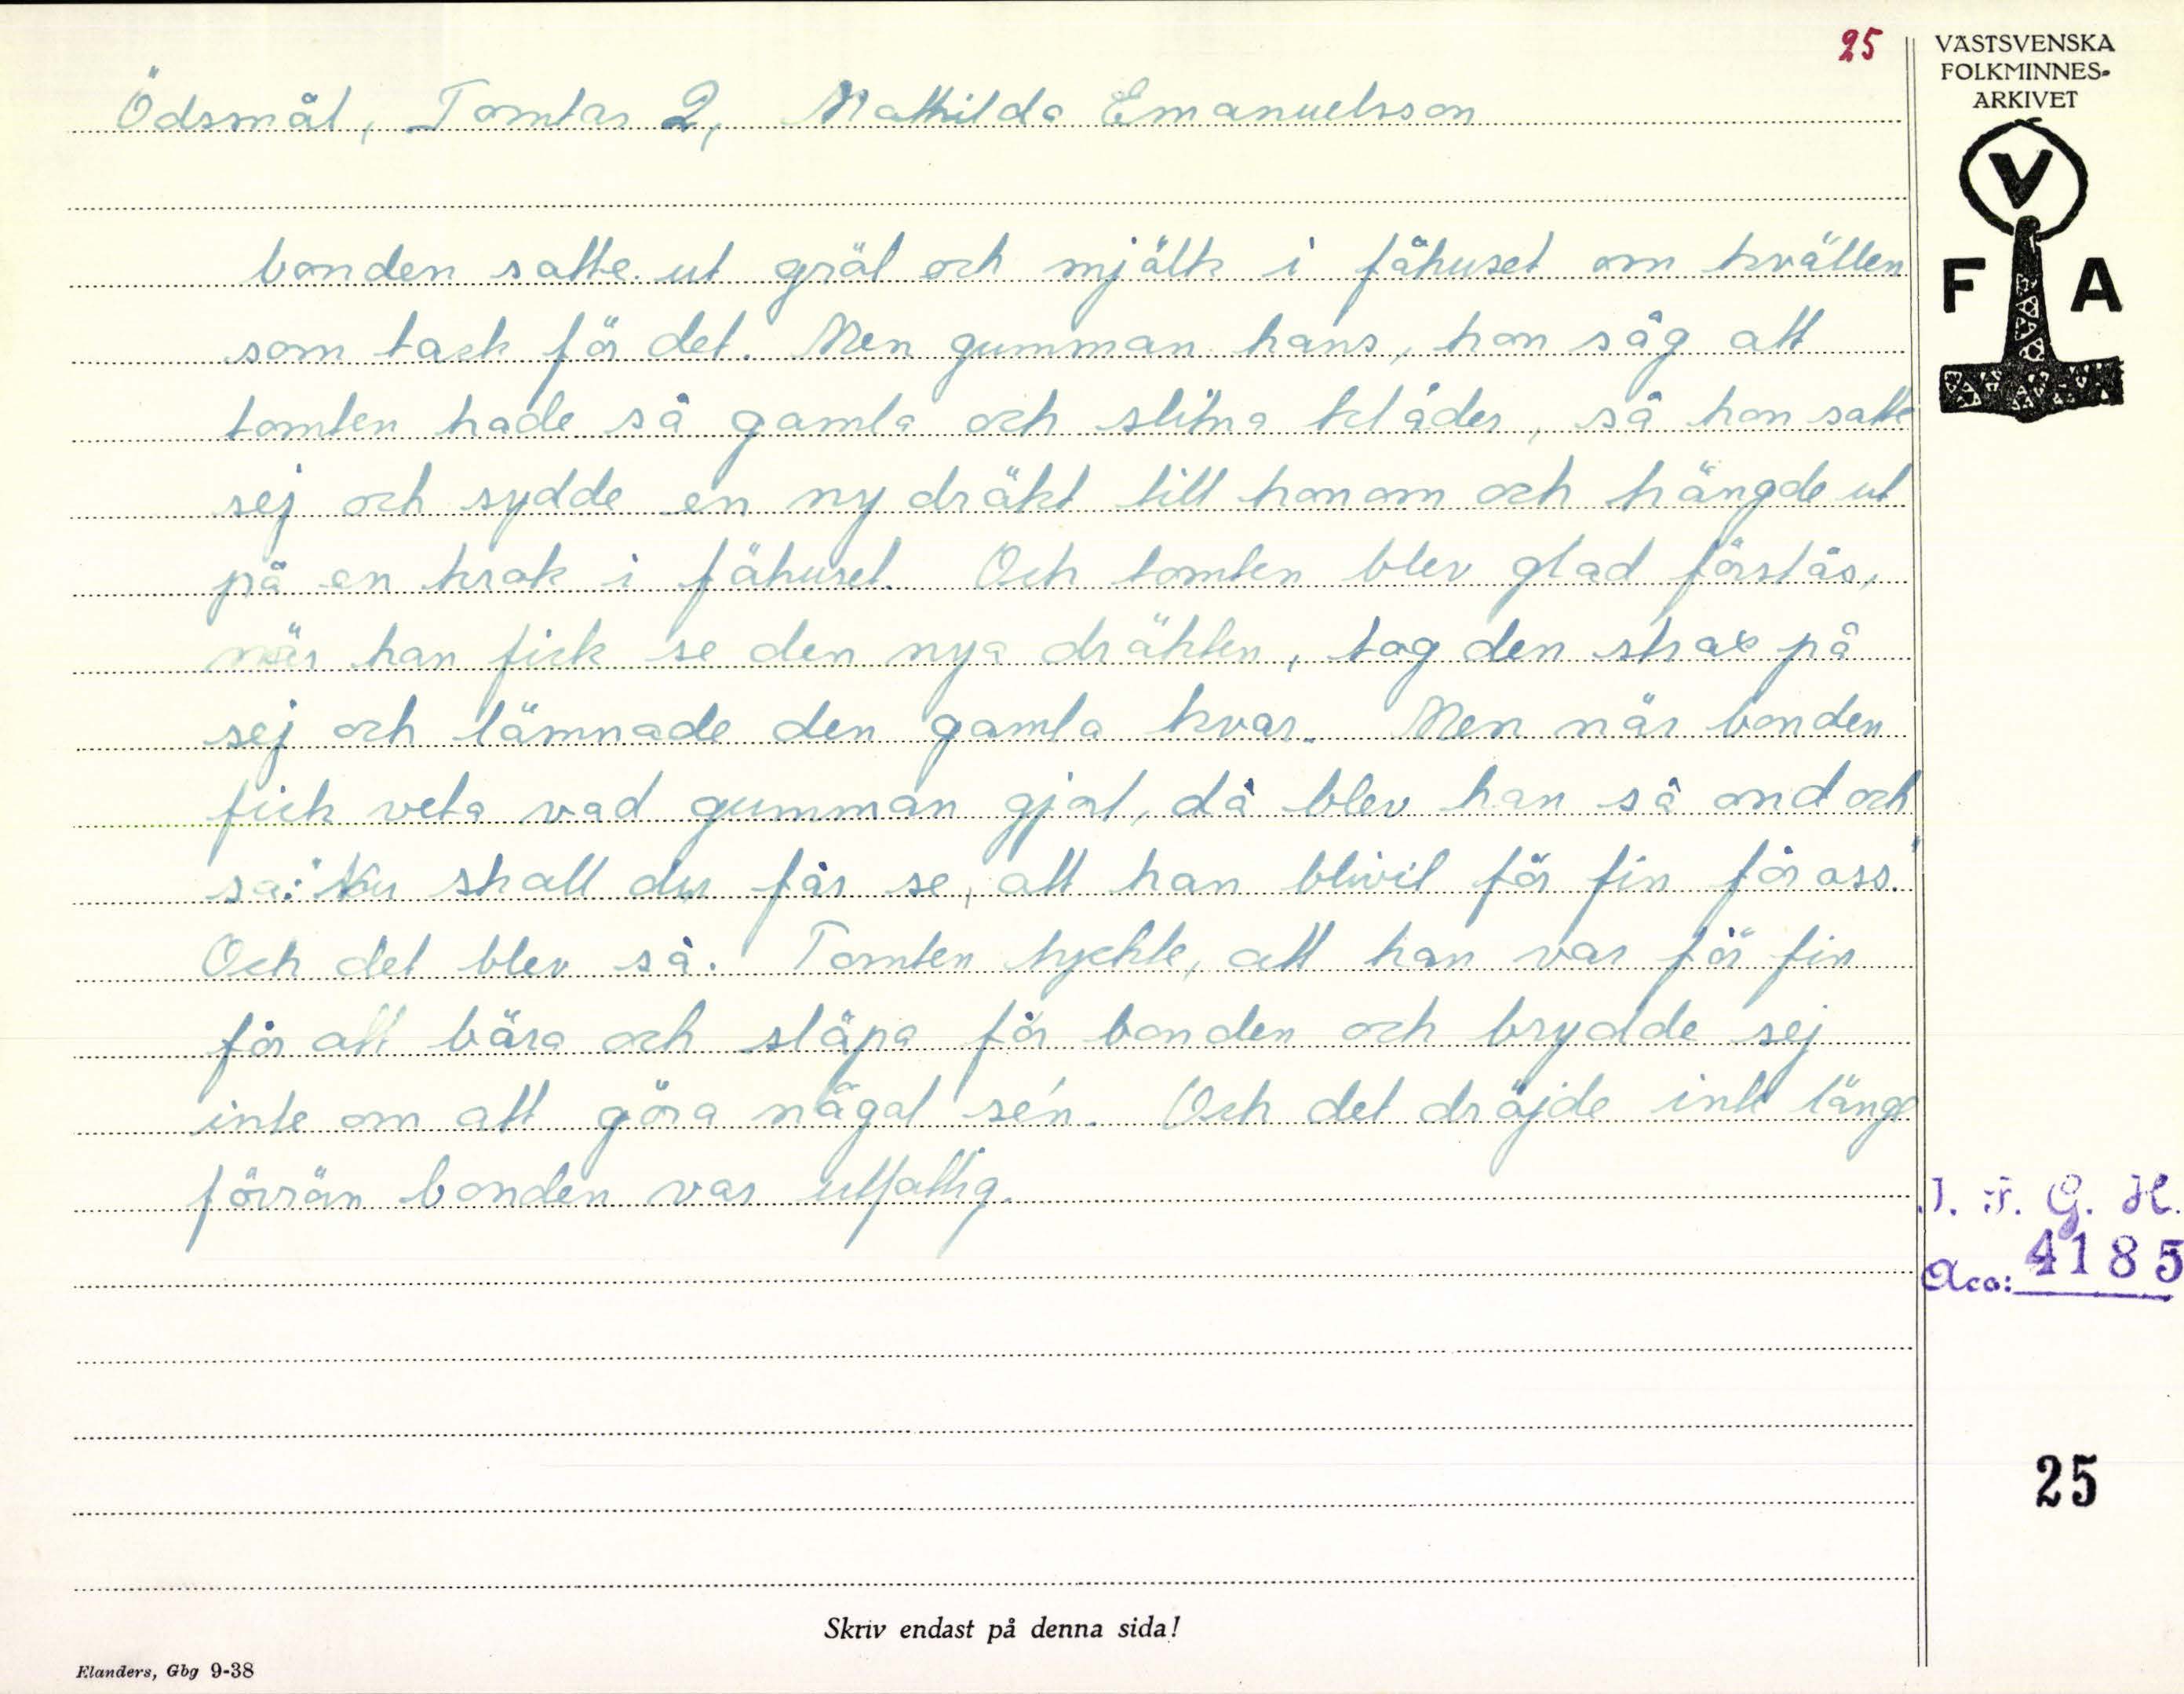 25
VÄSTSVENSKA
FOLKMINNES-
ARKIVET
V
F A
Ödsmål, Tomtar 2, Mathilda Emanuelsson
bonden satte ut gröt och mjölk i fähuset om kvällen
som tack för det. Men gumman hans, hon såg att
tomten hade så gamla och slitna kläder, så hon satte
sej och sydde en ny dräkt till honom och hängde ut
på en krok i fähuset. Och tomten blev glad förstås,
när han fick se den nya dräkten, tog den strax på
sej och lämnade den gamla kvar. Men när bonden
fick veta vad gumman gjort, då blev han så ond och
sa: "Nu skall du får se, att han blivit för fin för oss."
Och det blev så. Tomten tyckte, att han var för fin
för att bära och släpa för bonden och brydde sej
inte om att göra något se'n. Och det dröjde inte länge
förrän bonden var utfattig.
I. F. G. H.
Acc: 4185
25
Skriv endast på denna sida!
Elanders, Gbg 9-38